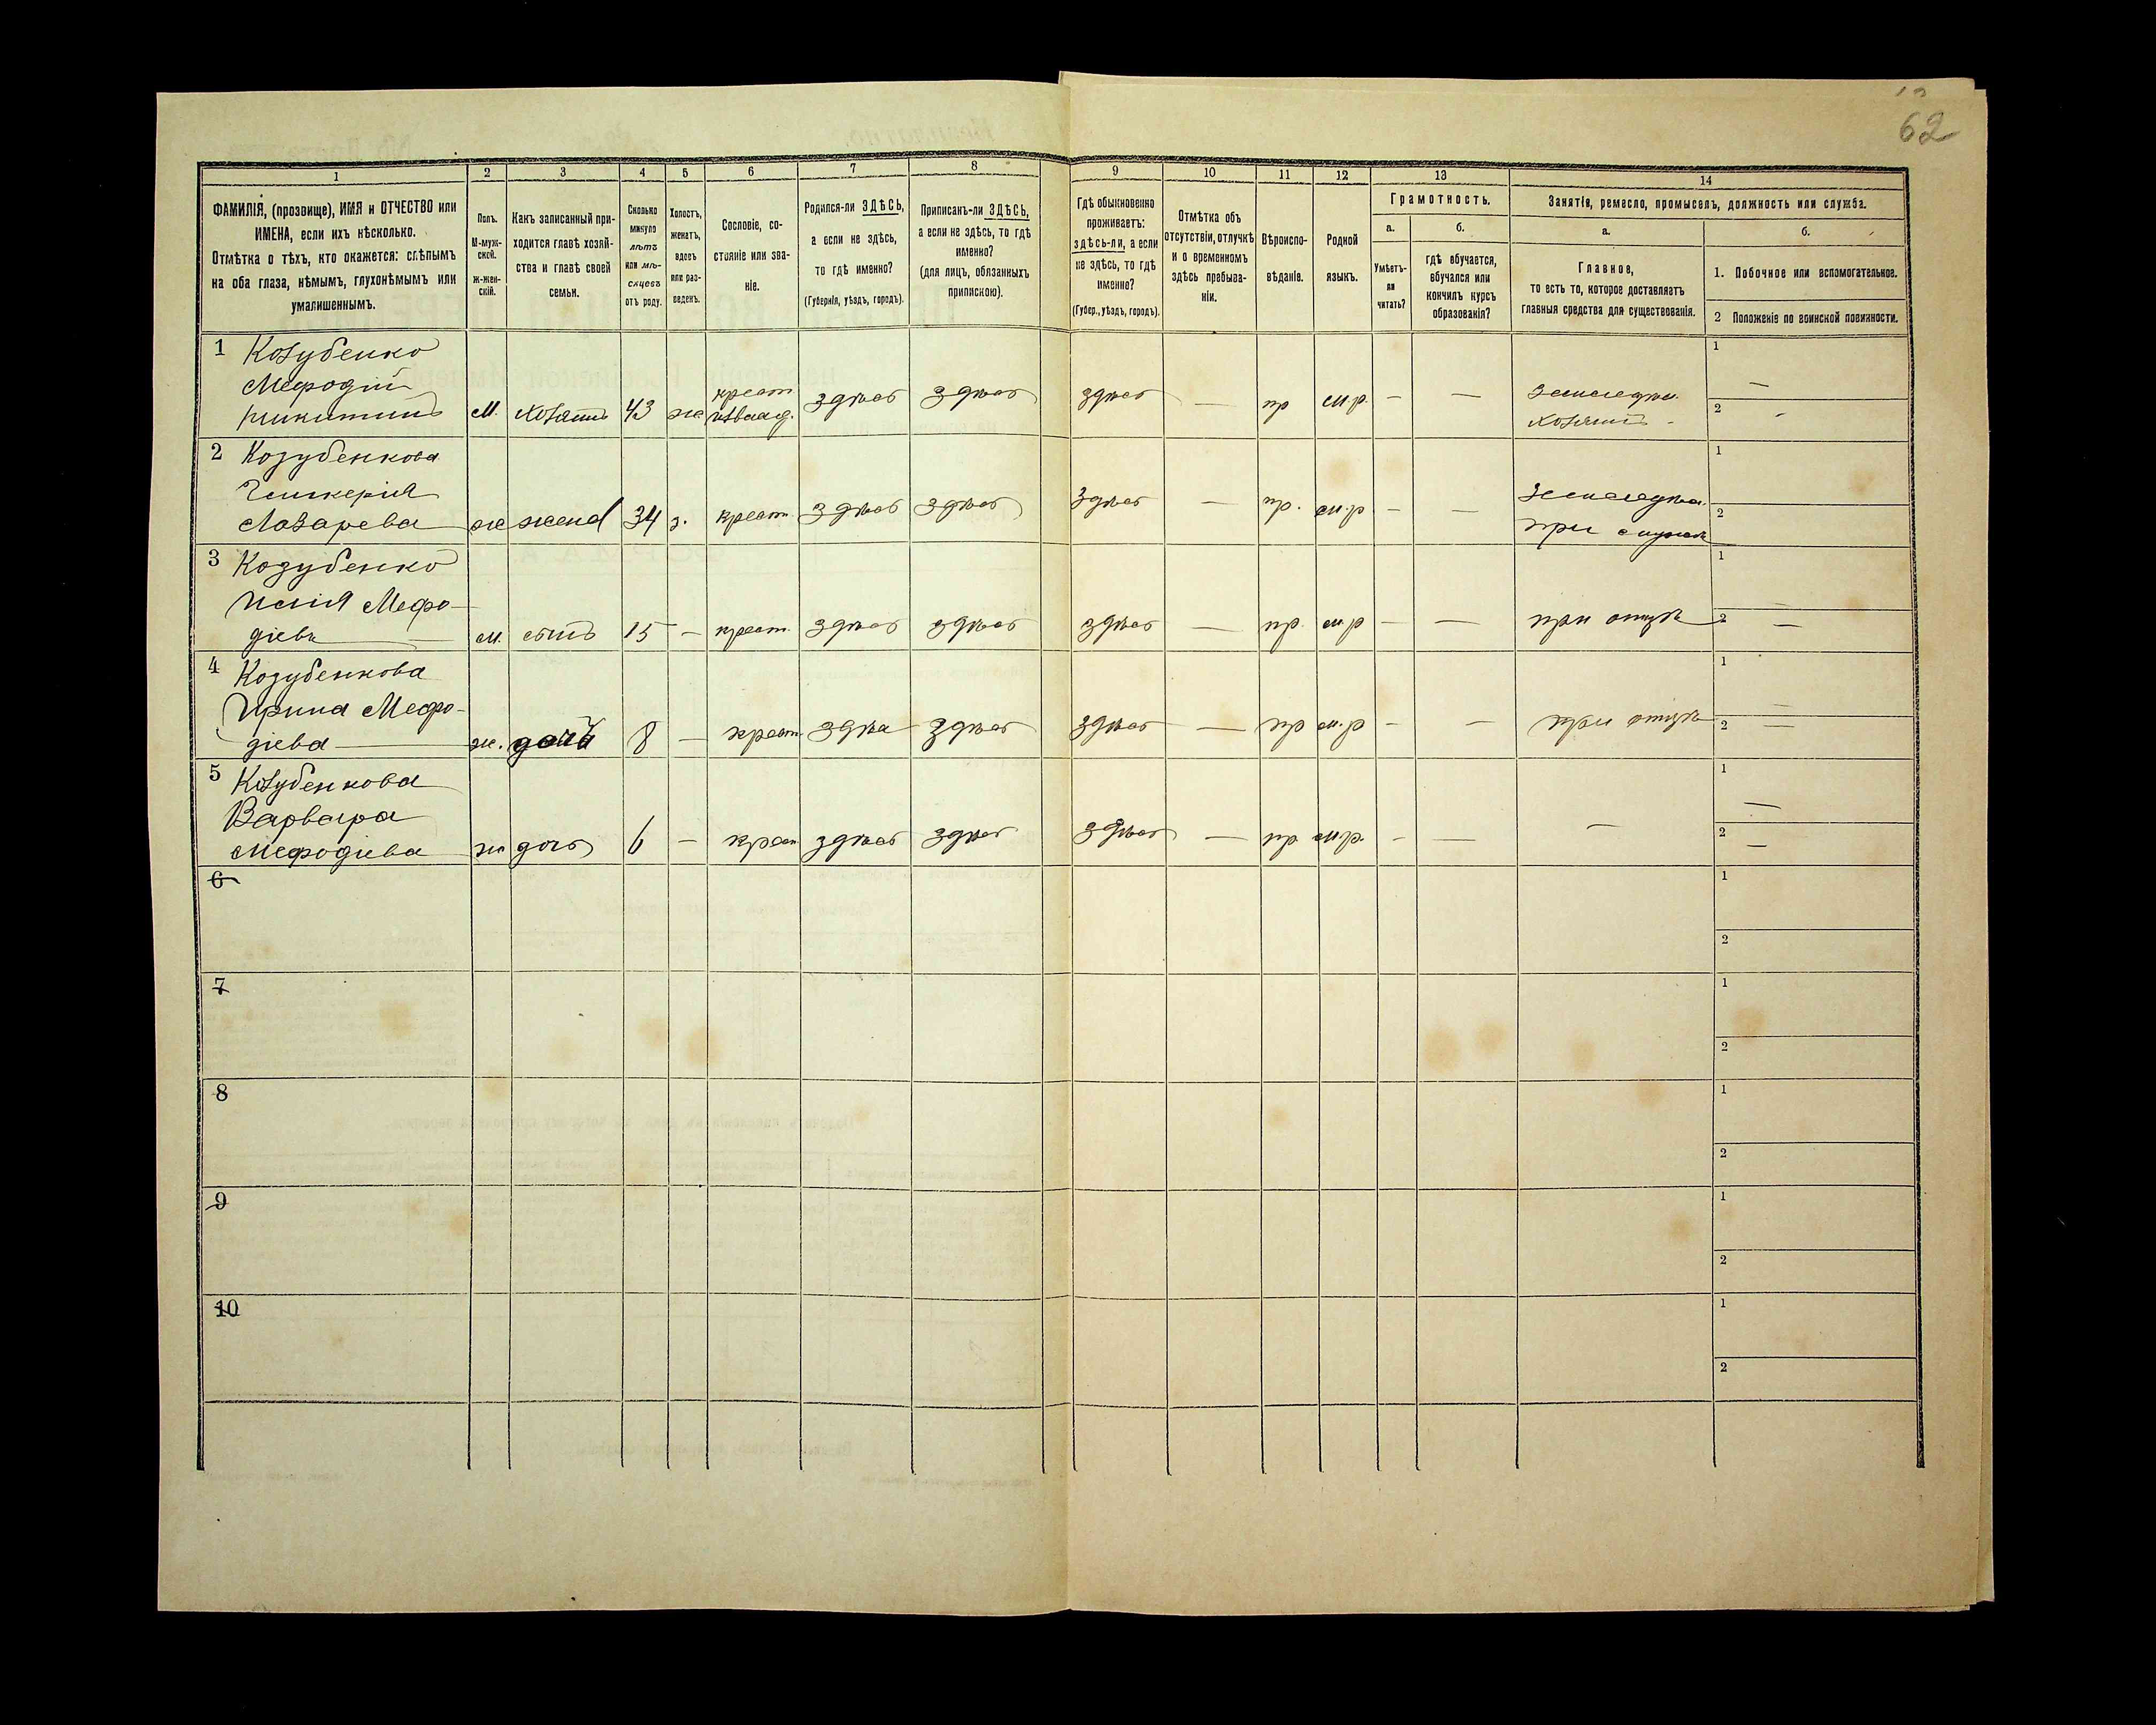 62
1 2 3 4 5 6 7 8 9 10 11 12 13 14
ФАМИЛІЯ, (прозвище), ИМЯ и ОТЧЕСТВО или
ИМЕНА, если ихъ нѣсколько.
Отмѣтка о тѣхъ, кто окажется: слѣпымъ
на оба глаза, нѣмымъ, глухонѣмымъ или
умалишеннымъ.
Полъ.
М-муж-
ской.
ж-жен-
скій.
Какъ записанный при-
ходится главѣ хозяй-
ства и главѣ своей
семьи.
Сколько
минуло
лѣтъ
или мѣ-
сяцевъ
отъ роду.
Холостъ,
женатъ,
вдовъ
или раз-
веденъ.
Сословіе, со-
стояніе или зва-
ніе.
Родился-ли ЗДѢСЬ,
а если не здѣсь,
то гдѣ именно?
(Губернія, уѣздъ, городъ).
Приписанъ-ли ЗДѢСЬ,
а если не здѣсь, то гдѣ
именно?
(для лицъ, обязанныхъ
припискою).
Гдѣ обыкновенно
проживаетъ:
здѣсь-ли, а если
не здѣсь, то гдѣ
именно?
(Губер., уѣздъ, городъ).
Отмѣтка объ
отсутствіи, отлучкѣ
и о временномъ
здѣсь пребыва-
ніи.
Вѣроиспо-
вѣданіе.
Родной
языкъ.
Грамотность.
а.
Умѣетъ-
ли
читать?
б.
гдѣ обучается,
обучался или
кончилъ курсъ
образованія?
Занятія, ремесло, промыселъ, должность или служба.
а.
Главное,
то есть то, которое доставляетъ
главныя средства для существованія.
б.
1. Побочное или вспомогательное.
2 Положеніе по воинской повинности.
1 Козубенко
Мефодій
Никитинъ м. хозяинъ 43 же крест. из влад. здѣсь здѣсь здѣсь — пр м.р. — — земледѣл. хозяинъ 1 — 2 -
2 Козубенкова
Гликерія
Лазарева же жена 34 з. крест. здѣсь здѣсь здѣсь — пр. м.р — — земледѣл. при мужѣ 1 2
3 Козубенко
Илія Мефо-
діевъ м. сынъ 15 — крест. здѣсь здѣсь здѣсь — пр. м.р — — при отцѣ 1 — 2 —
4 Козубенкова
Ирина Мефо-
діева ж. дочь 8 — крест. здѣсь здѣсь здѣсь — пр м.р — — при отцѣ 1 — 2 —
5 Козубенкова
Варвара
Мефодіева ж дочь 6 — крест здѣсь здѣсь здѣсь — пр м.р. — — — 1 — 2 —
6 1 2
7 1 2
8 1 2
9 1 2
10 1 2